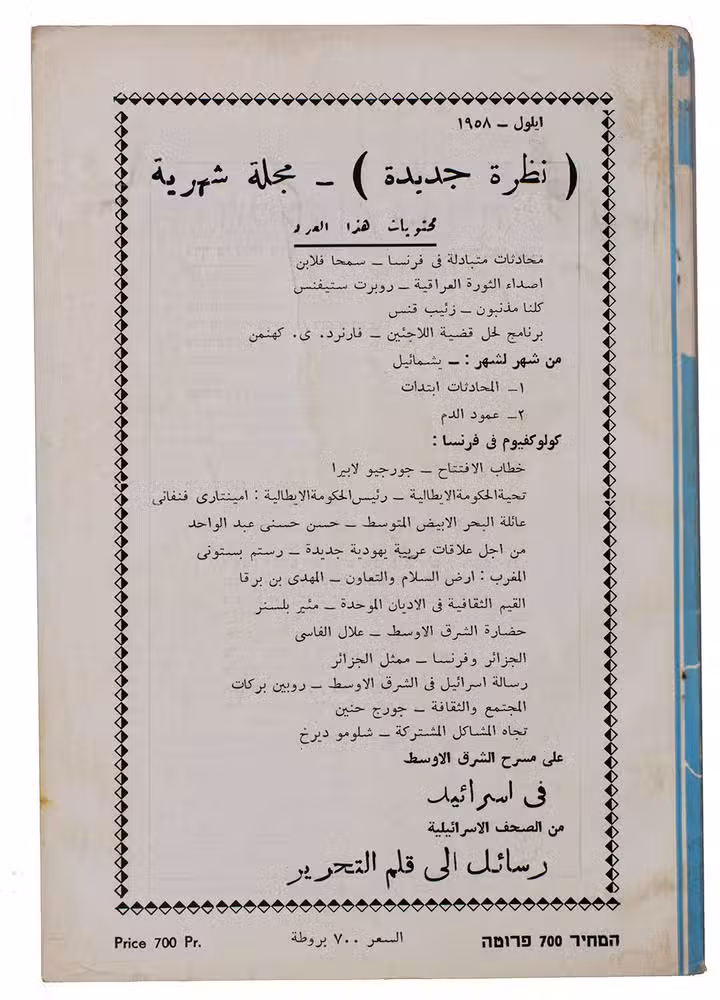 ايلول – ١٩٥٨
( نظرة جديدة ) – مجلة شهرية
محتويات هذا العدد
محادثات متبادلة فى فرنسا – سمحا فلابن
اصداء الثورة العراقية – روبرت ستيفنس
كلنا مذنبون – زئيب قنس
برنامج لحل قضية اللاجئين – فارنرد. ى. كهنمن
من شهر لشهر : – يشمائيل
١– المحادثات ابتدات
٢– عمود الدم
كولوكفيوم فى فرنسا :
خطاب الافتتاح – جورجيو لابيرا
تحية الحكومة الايطالية – رئيس الحكومة الايطالية : امينتارى فنفانى
عائلة البحر الابيض المتوسط – حسن حسنى عبد الواحد
من اجل علاقات عربية يهودية جديدة – رستم بستونى
المغرب : ارض السلام والتعاون – المهدى بن برقا
القيم الثقافية فى الاديان الموحدة – مئير بلسنر
حضارة الشرق الاوسط – علال الفاسى
الجزائر وفرنسا – ممثل الجزائر
رسالة اسرائيل فى الشرق الاوسط – روبين بركات
المجتمع والثقافة – جورج حنين
تجاه المشاكل المشتركة – شلومو ديرخ
على مسرح الشرق الاوسط
فى اسرائيل
من الصحف الاسرائيلية
رسائل الى قلم التحرير
המחיר 700 פרוטה
السعر ٧٠٠ بروطة
Price 700 Pr.